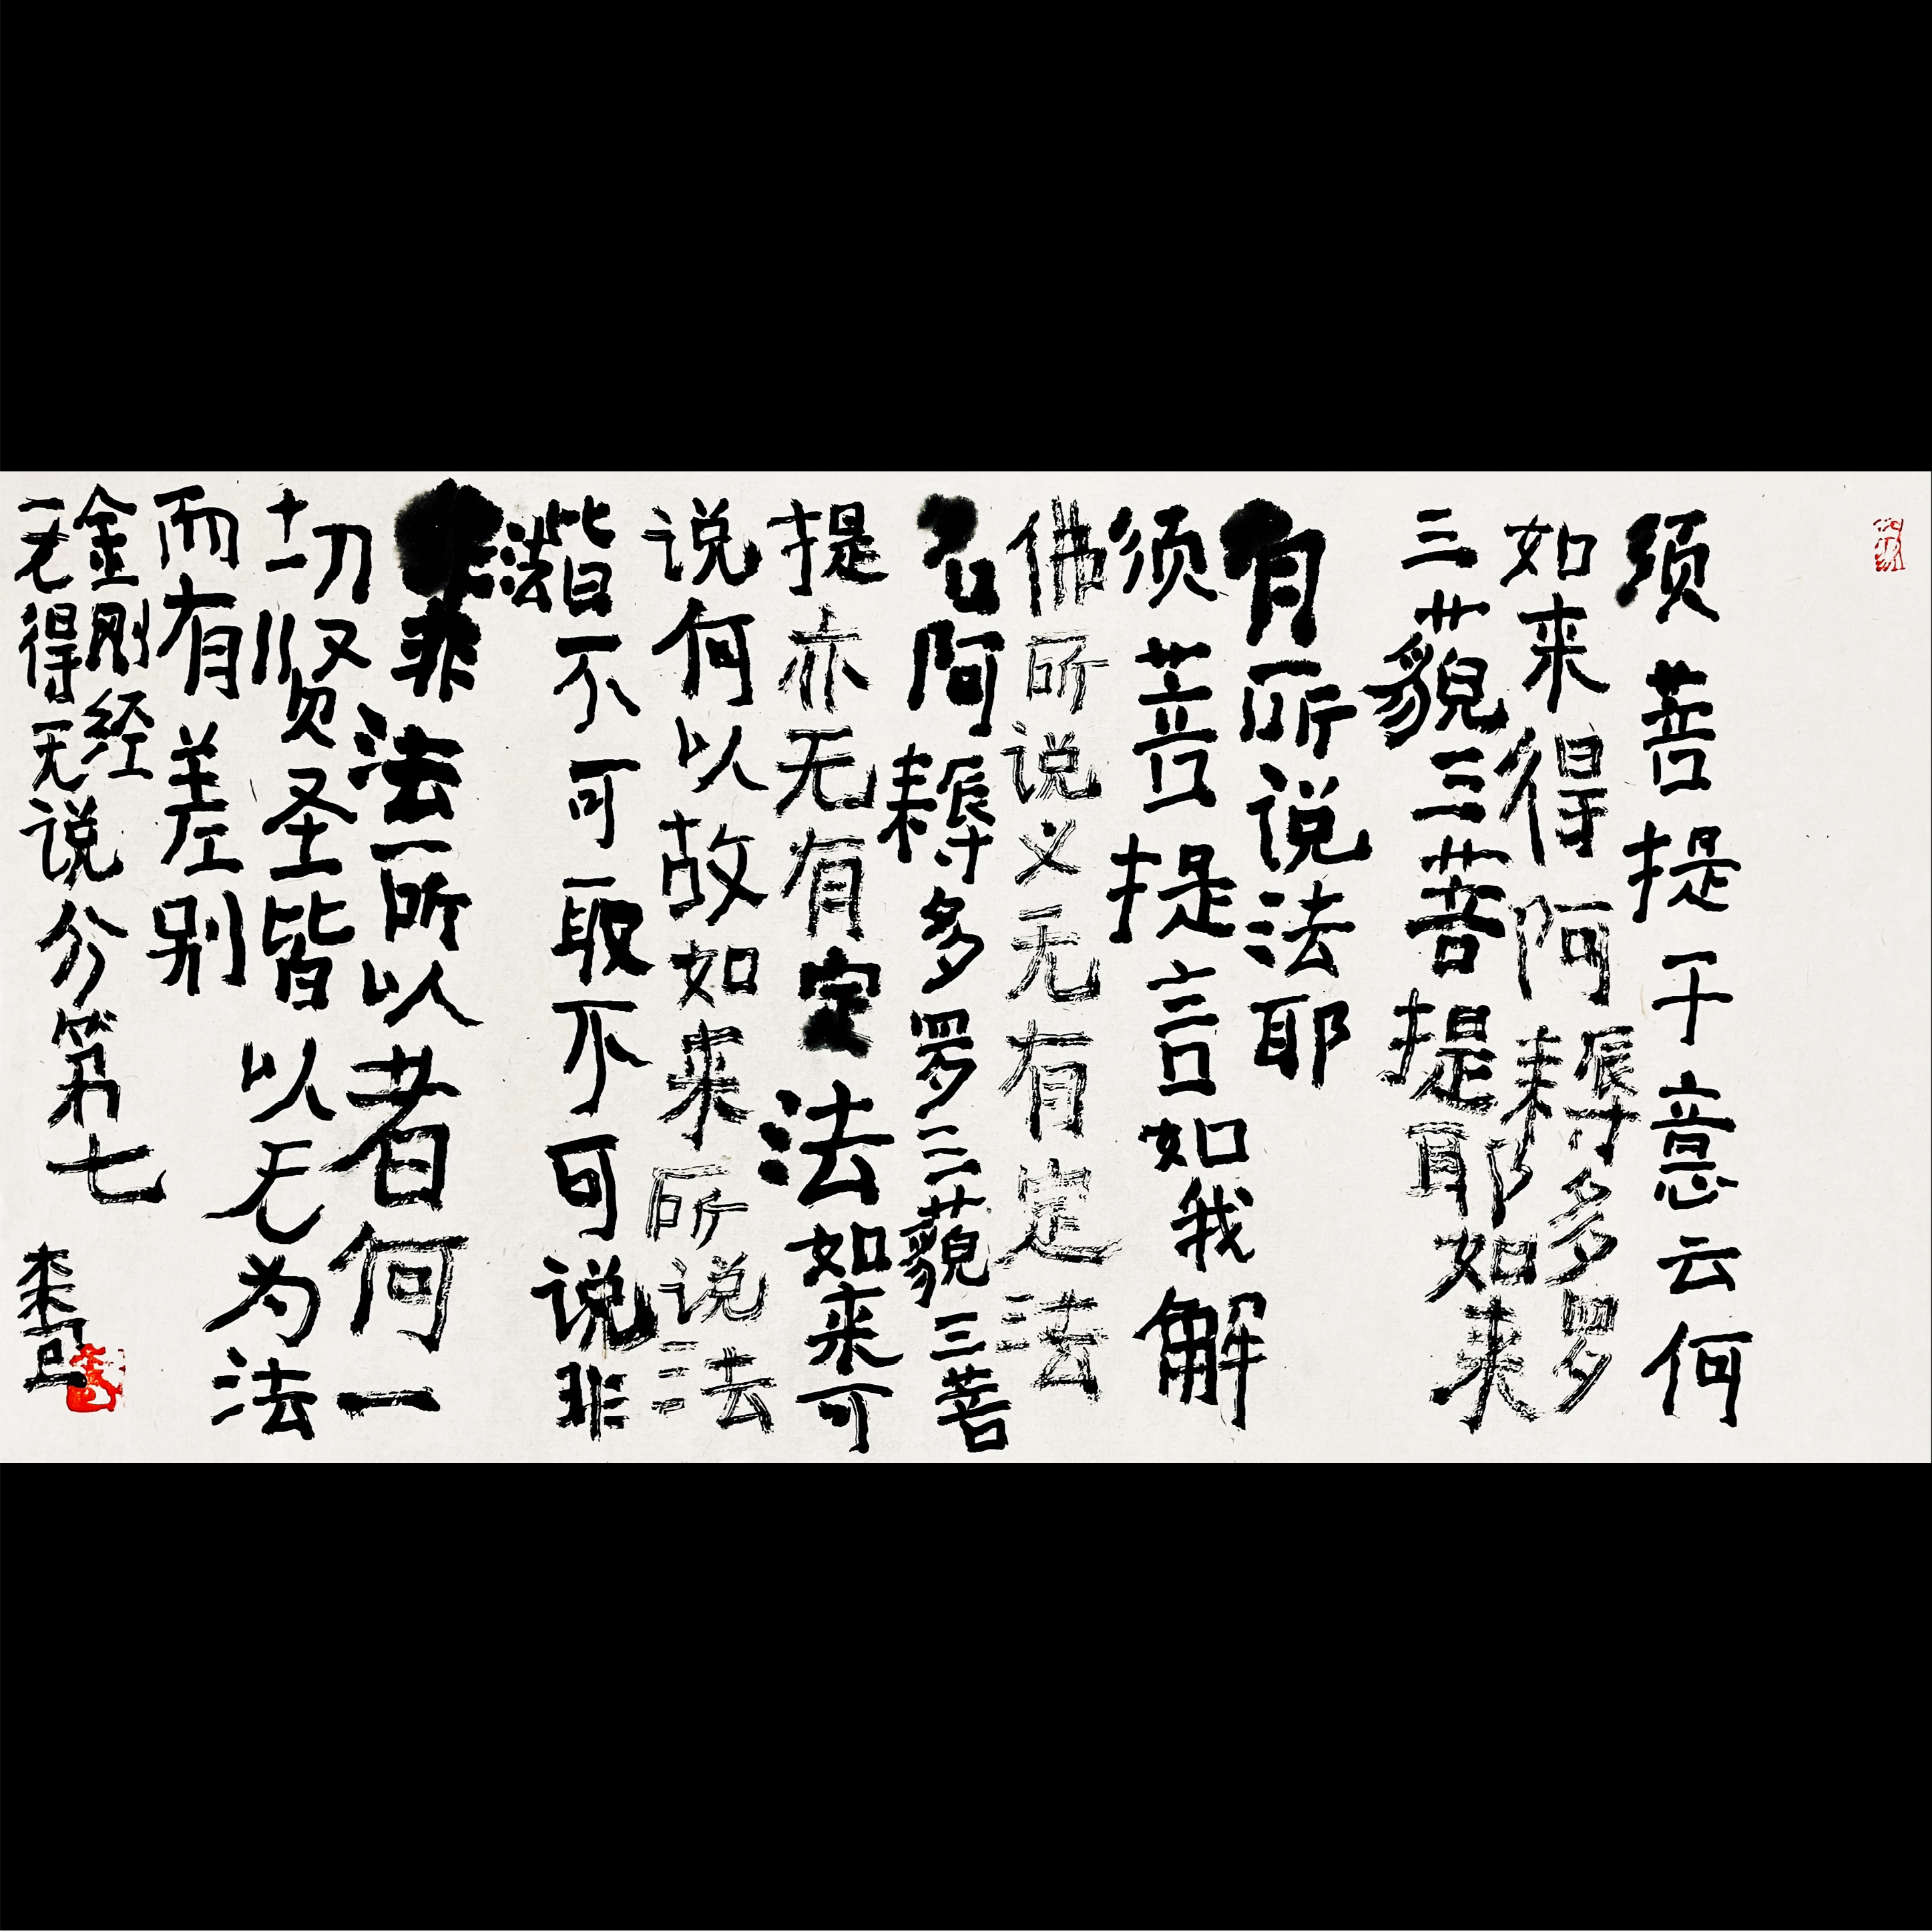 须菩提于意云何
如来得阿耨多罗
三藐三菩提耶如来
有所说法耶
须菩提言如我解
佛所说义无有定法
名阿耨多罗三藐三菩
提亦无有定法如来可
说何以故如来所说法
皆不可取不可说非
法非法所以者何一
切贤圣皆以无为法
而有差别
金刚经
无得无说分第七